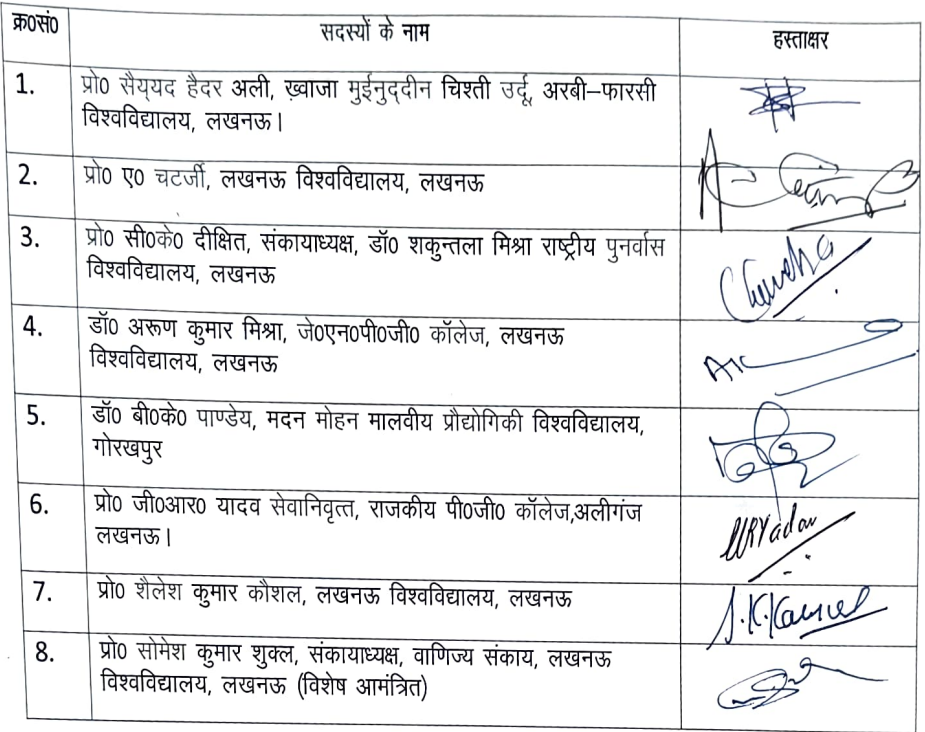 क्र0सं0 सदस्यों के नाम हस्ताक्षर
1. प्रो0 सैय्यद हैदर अली, ख़्वाजा मुईनुद्दीन चिश्ती उर्दू, अरबी–फारसी
विश्वविद्यालय, लखनऊ।
2. प्रो0 ए0 चटर्जी, लखनऊ विश्वविद्यालय, लखनऊ
3. प्रो0 सी0के0 दीक्षित, संकायाध्यक्ष, डॉ0 शकुन्तला मिश्रा राष्ट्रीय पुनर्वास
विश्वविद्यालय, लखनऊ
4. डॉ0 अरूण कुमार मिश्रा, जे0एन0पी0जी0 कॉलेज, लखनऊ
विश्वविद्यालय, लखनऊ
5. डॉ0 बी0के0 पाण्डेय, मदन मोहन मालवीय प्रौद्योगिकी विश्वविद्यालय,
गोरखपुर
6. प्रो0 जी0आर0 यादव सेवानिवृत्त, राजकीय पी0जी0 कॉलेज,अलीगंज
लखनऊ।
7. प्रो0 शैलेश कुमार कौशल, लखनऊ विश्वविद्यालय, लखनऊ
8. प्रो0 सोमेश कुमार शुक्ल, संकायाध्यक्ष, वाणिज्य संकाय, लखनऊ
विश्वविद्यालय, लखनऊ (विशेष आमंत्रित)